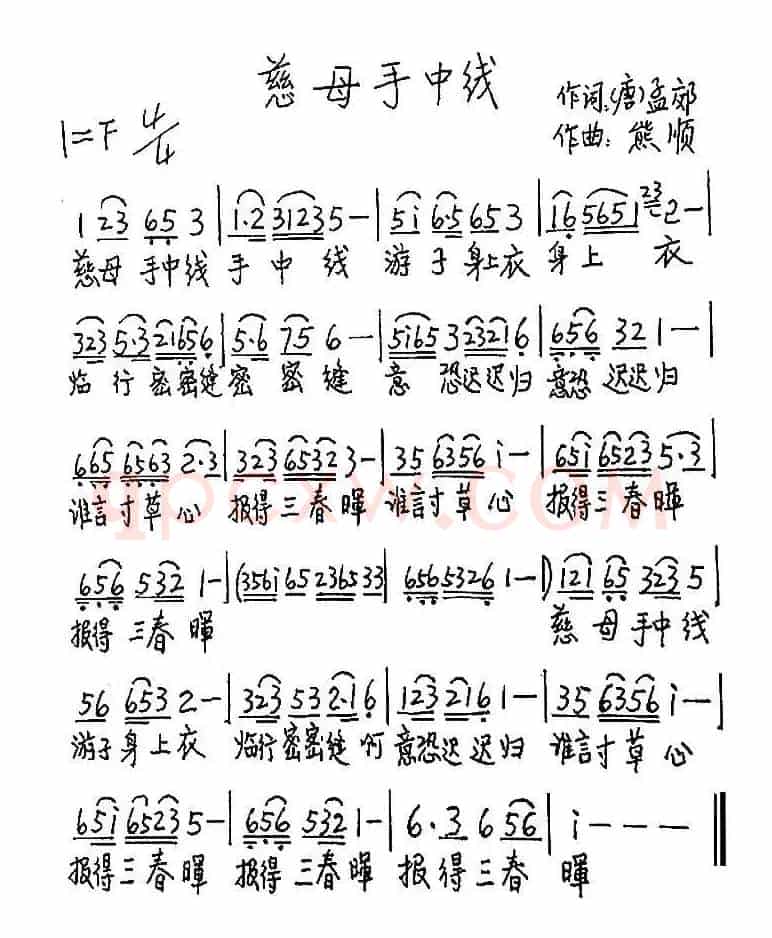 慈母手中线
作词:(唐)孟郊
1=F 4/4
作曲:熊顺
1 23 65 3 | 1·2 3123 5 — | 5i 6·5 65 3 | 16 5651 23 2 — |
慈母 手中线 手 中 线 游 子 身上衣 身上 衣
323 5·3 2165 6 | 5·6 75 6 — | 5i65 3 2321 6 | 656 32 1 — |
临 行 密密缝 密 密 缝 意 恐迟迟归 意恐 迟迟归
665 6563 2·3 | 323 6532 3 — | 35 6356 i — | 65i 6523 5·3 |
谁言寸草心 报得三春暉 谁言寸草心 报得三春暉
656 532 1 — | (356i 65 2365 33 | 656 5326 1 — |) 121 65 323 5 |
报得 三春暉 慈 母 手中线
56 653 2 — | 323 53 2·1 6 | 123 216 1 — | 35 6356 i — |
游子身上衣 临行密密缝 啊 意恐迟迟归 谁言寸草心
65i 6523 5 — | 656 532 1 — | 6·3 6 56 | i — — — ‖
报得三春暉 报得三春暉 报得三春 暉